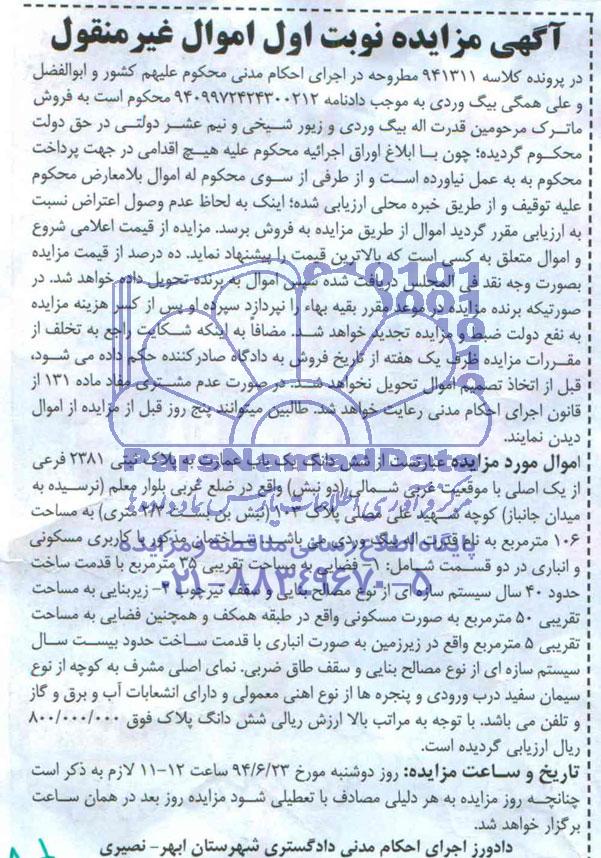 آگهی مزایده نوبت اول اموال غیرمنقول
در پرونده کلاسه ۹۴۱۳۱۱ مطروحه در اجرای احکام مدنی محکوم علیهم کشور و ابوالفضل
و علی همگی بیگ وردی به موجب دادنامه ۹۴۰۹۹۷۲۴۲۴۳۰۰۲۱۲ محکوم است به فروش
ماترک مرحومین قدرت اله بیگ وردی و زیور شیخی و نیم عشر دولتی در حق دولت
محکوم گردیده؛ چون با ابلاغ اوراق اجرائیه محکوم علیه هیچ اقدامی در جهت پرداخت
محکوم به به عمل نیاورده است و از طرفی از سوی محکوم له اموال بلامعارض محکوم
علیه توقیف و از طریق خبره محلی ارزیابی شده؛ اینک به لحاظ عدم وصول اعتراض نسبت
به ارزیابی مقرر گردید اموال از طریق مزایده به فروش برسد. مزایده از قیمت اعلامی شروع
و اموال متعلق به کسی است که بالاترین قیمت را پیشنهاد نماید. ده درصد از قیمت مزایده
بصورت وجه نقد فی المجلس دریافت شده سپس اموال به برنده تحویل داده خواهد شد. در
صورتیکه برنده مزایده در موعد مقرر بقیه بهاء را نپردازد سپرده او پس از کسر هزینه مزایده
به نفع دولت ضبط و مزایده تجدید خواهد شد. مضافا به اینکه شکایت راجع به تخلف از
مقررات مزایده ظرف یک هفته از تاریخ فروش به دادگاه صادرکننده حکم داده می شود،
قبل از اتخاذ تصمیم اموال تحویل نخواهد شد. در صورت عدم مشتری مفاد ماده ۱۳۱ از
قانون اجرای احکام مدنی رعایت خواهد شد. طالبین میتوانند پنج روز قبل از مزایده از اموال
دیدن نمایند.
اموال مورد مزایده عبارتست از شش دانگ یک باب عمارت به پلاک ثبتی ۲۳۸۱ فرعی
از یک اصلی با موقعیت غربی شمالی (دو نبش) واقع در ضلع غربی بلوار معلم (نرسیده به
میدان جانباز) کوچه شهید علی پلاک (نبش بن بست متری) به مساحت
۱۰۶ مترمربع به نام قدرت اله بیگ وردی می باشد. ساختمان مذکور با کاربری مسکونی
و انباری در دو قسمت شامل: ۱- فضایی به مساحت تقریبی ۳۵ مترمربع با قدمت ساخت
حدود ۴۰ سال سیستم سازه ای از نوع مصالح بنایی و سقف تیرچوب ۲- زیربنایی به مساحت
تقریبی ۵۰ مترمربع به صورت مسکونی واقع در طبقه همکف و همچنین فضایی به مساحت
تقریبی ۵ مترمربع واقع در زیرزمین به صورت انباری با قدمت ساخت حدود بیست سال
سیستم سازه ای از نوع مصالح بنایی و سقف طاق ضربی. نمای اصلی مشرف به کوچه از نوع
سیمان سفید درب ورودی و پنجره ها از نوع اهنی معمولی و دارای انشعابات آب و برق و گاز
و تلفن می باشد. با توجه به مراتب بالا ارزش ریالی شش دانگ پلاک فوق ۸۰۰/۰۰۰/۰۰۰
ریال ارزیابی گردیده است.
تاریخ و ساعت مزایده: روز دوشنبه مورخ ۹۴/۶/۲۳ ساعت ۱۲-۱۱ لازم به ذکر است
چنانچه روز مزایده به هر دلیلی مصادف با تعطیلی شود مزایده روز بعد در همان ساعت
برگزار خواهد شد.
دادورز اجرای احکام مدنی دادگستری شهرستان ابهر- نصیری
ParsNamadData
پایگاه اطلاع رسانی مناقصه و مزایده
۰۲۱-۸۸۳۴۹۶۷۰-۵